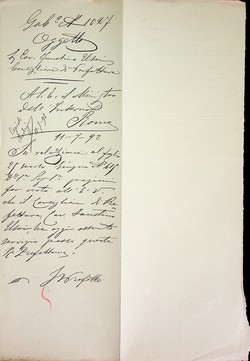 Gab.º N 1027
Oggetto
Cav. Faustino Usai
Consigliere di Prefettura
A S. E. il Ministro
dell' Interno
Roma
11-7-92
In relazione al foglio
21 Giugno
pregiomi
far noto all' E. V.
che il Consigliere di Pre
fettura, Cav. Faustino
Usai ha oggi assunto
servizio presso questa
R. Prefettura.
Il Prefetto